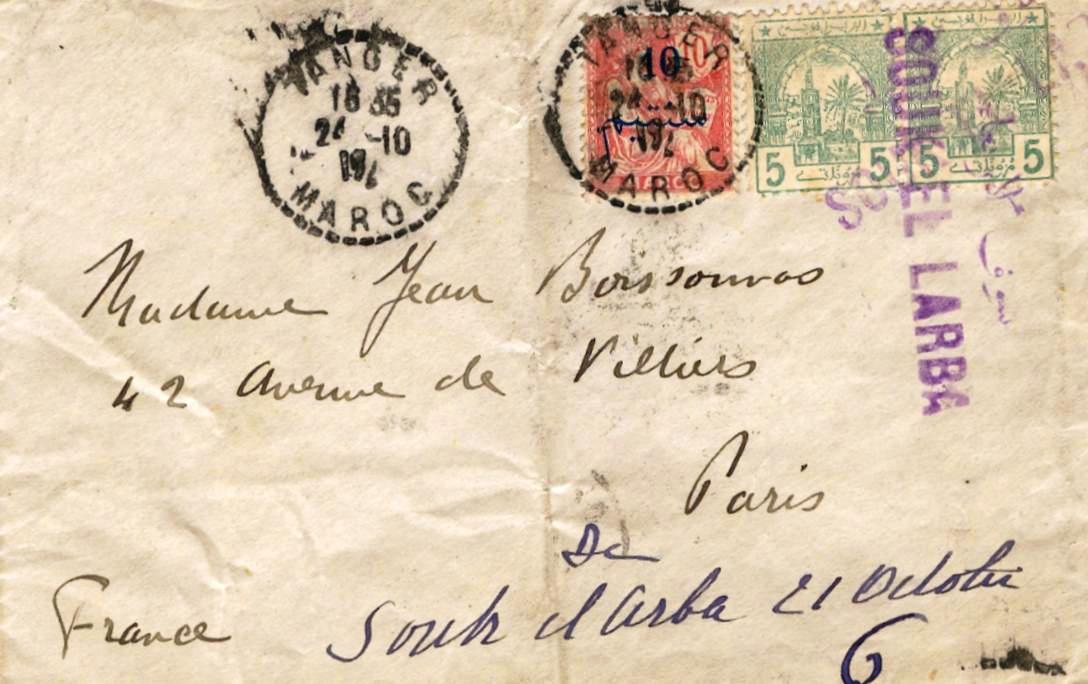 TANGER
18 35
24 -10
MAROC
TANGER
10
24 -10
MAROC
5 5
5 5
SOUK EL LARBA
Madame Jean
42 Avenue de Villiers
Paris
France
De
Souk el Arba 21 Octobre
6